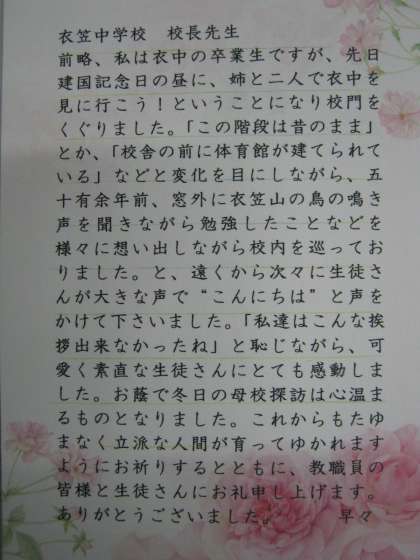 衣笠中学校　校長先生
前略、私は衣中の卒業生ですが、先日
建国記念日の昼に、姉と二人で衣中を
見に行こう！ということになり校門を
くぐりました。「この階段は昔のまま」
とか、「校舎の前に体育館が建てられて
いる」などと変化を目にしながら、五
十有余年前、窓外に衣笠山の鳥の鳴き
声を聞きながら勉強したことなどを
様々に想い出しながら校内を巡ってお
りました。と、遠くから次々に生徒さ
んが大きな声で“こんにちは”と声を
かけて下さいました。「私達はこんな挨
拶出来なかったね」と恥じながら、可
愛く素直な生徒さんにとても感動しま
した。お蔭で冬日の母校探訪は心温ま
るものとなりました。これからもたゆ
まなく立派な人間が育ってゆかれます
ようにお祈りするとともに、教職員の
皆様と生徒さんにお礼申し上げます。
ありがとうございました。　　　早々